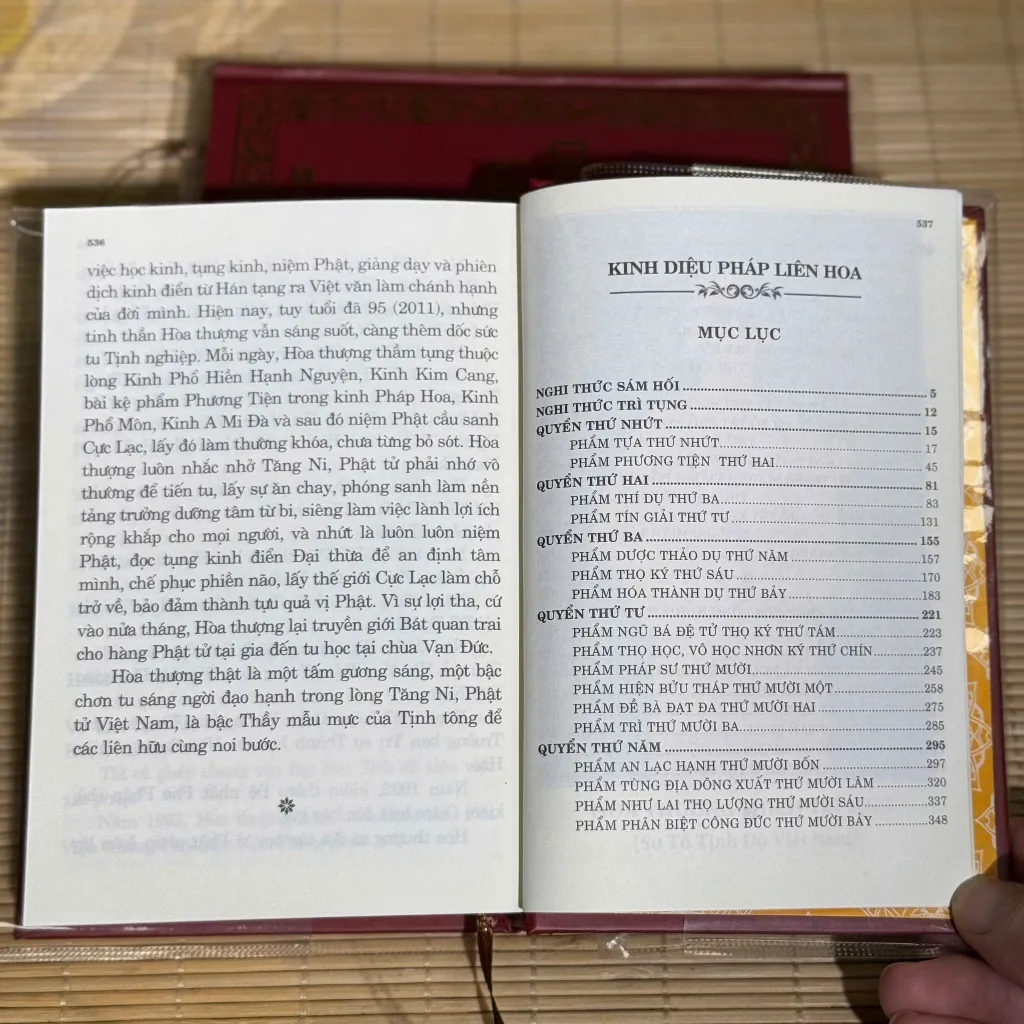 536
việc học kinh, tụng kinh, niệm Phật, giảng dạy và phiên
dịch kinh điển từ Hán tạng ra Việt văn làm chánh hạnh
của đời mình. Hiện nay, tuy tuổi đã 95 (2011), nhưng
tinh thần Hòa thượng vẫn sáng suốt, càng thêm dốc sức
tu Tịnh nghiệp. Mỗi ngày, Hòa thượng thầm tụng thuộc
lòng Kinh Phổ Hiền Hạnh Nguyện, Kinh Kim Cang,
bài kệ phẩm Phương Tiện trong kinh Pháp Hoa, Kinh
Phổ Môn, Kinh A Mi Đà và sau đó niệm Phật cầu sanh
Cực Lạc, lấy đó làm thường khóa, chưa từng bỏ sót. Hòa
thượng luôn nhắc nhở Tăng Ni, Phật tử phải nhớ vô
thường để tiến tu, lấy sự ăn chay, phóng sanh làm nền
tảng trưởng dưỡng tâm từ bi, siêng làm việc lành lợi ích
rộng khắp cho mọi người, và nhứt là luôn luôn niệm
Phật, đọc tụng kinh điển Đại thừa để an định tâm
mình, chế phục phiền não, lấy thế giới Cực Lạc làm chỗ
trở về, bảo đảm thành tựu quả vị Phật. Vì sự lợi tha, cứ
vào nửa tháng, Hòa thượng lại truyền giới Bát quan trai
cho hàng Phật tử tại gia đến tu học tại chùa Vạn Đức.
Hòa thượng thật là một tấm gương sáng, một bậc
chơn tu sáng ngời đạo hạnh trong lòng Tăng Ni, Phật
tử Việt Nam, là bậc Thầy mẫu mực của Tịnh tông để
các liên hữu cùng noi bước.
537
KINH DIỆU PHÁP LIÊN HOA
MỤC LỤC
NGHI THỨC SÁM HỐI ........ 5
NGHI THỨC TRÌ TỤNG ........ 12
QUYỂN THỨ NHỨT ........ 15
PHẨM TỰA THỨ NHỨT ........ 17
PHẨM PHƯƠNG TIỆN THỨ HAI ........ 45
QUYỂN THỨ HAI ........ 81
PHẨM THÍ DỤ THỨ BA ........ 83
PHẨM TÍN GIẢI THỨ TƯ ........ 131
QUYỂN THỨ BA ........ 155
PHẨM DƯỢC THẢO DỤ THỨ NĂM ........ 157
PHẨM THỌ KÝ THỨ SÁU ........ 170
PHẨM HÓA THÀNH DỤ THỨ BẢY ........ 183
QUYỂN THỨ TƯ ........ 221
PHẨM NGŨ BÁ ĐỆ TỬ THỌ KÝ THỨ TÁM ........ 223
PHẨM THỌ HỌC, VÔ HỌC NHƠN KÝ THỨ CHÍN ........ 237
PHẨM PHÁP SƯ THỨ MƯỜI ........ 245
PHẨM HIỆN BỬU THÁP THỨ MƯỜI MỘT ........ 258
PHẨM ĐỀ BÀ ĐẠT ĐA THỨ MƯỜI HAI ........ 275
PHẨM TRÌ THỨ MƯỜI BA ........ 285
QUYỂN THỨ NĂM ........ 295
PHẨM AN LẠC HẠNH THỨ MƯỜI BỐN ........ 297
PHẨM TÙNG ĐỊA DÕNG XUẤT THỨ MƯỜI LĂM ........ 320
PHẨM NHƯ LAI THỌ LƯỢNG THỨ MƯỜI SÁU ........ 337
PHẨM PHÂN BIỆT CÔNG ĐỨC THỨ MƯỜI BẢY ........ 348